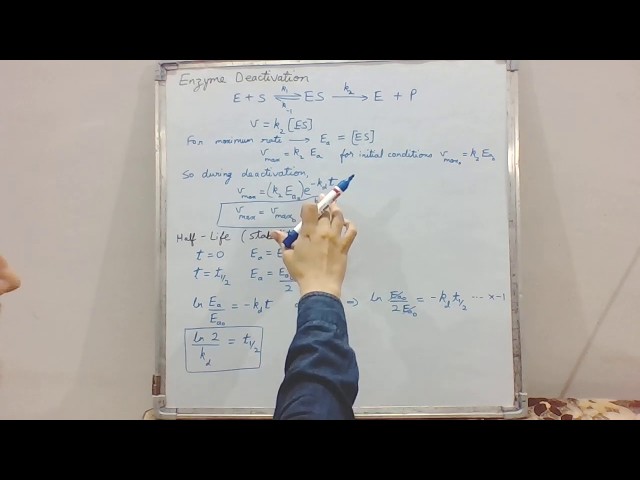 Enzyme Deactivation
E + S ⇌ ES → E + P k₁ k₋₁ k₂
v = k₂ [ES]
For maximum rate → Eₐ = [ES]
vₘₐₓ = k₂ Eₐ for initial conditions vₘₐₓ₀ = k₂ Eₐ₀
So during deactivation,
vₘₐₓ = (k₂ Eₐ₀) e^(-k_d t)
vₘₐₓ = vₘₐₓ₀
Half-Life (
t = 0 Eₐ =
t = t₁/₂ Eₐ = /2
ln Eₐ/Eₐ₀ = -k_d t ⇒ ln Eₐ₀/2Eₐ₀ = -k_d t₁/₂ ... x-1
ln 2/k_d = t₁/₂